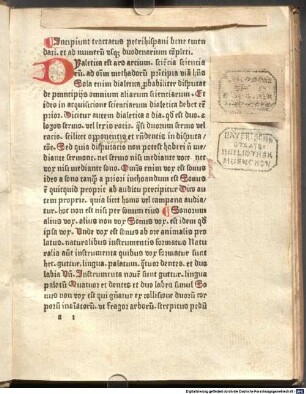 Incipiunt tractatus petri hispani bene emendati.
et ad numerū vsq; duodenarium cōpleti.
Dyaletica est ars artium. sciētia scientiarū.
ad oīm methodorū prīcipia viā hn̄s
Sola enim dialetica p̄babiliter disputat
de principijs omnium aliarum scientiarum. Et
ideo in acquisicione scientiarum dialetica debet eē
prior. Dicitur autem dialetica a dia. qd̄ est duo. et
logos sermo. vel lexis racio. q̄si duorum sermo vel
racio. scilicet opponentis et rn̄dentis in disputacōne.
Sed quia disputacio non potest haberi nisi mediante
sermone. nec sermo nisi mediante voce. nec
vox nisi mediante sono. Omnis enim vox est sonus
ideo a sono tanq̄ a priori inchoandum est Sonus
ē quicquid proprie ab auditu percipitur Dico autem
proprie. quia licet homo vel campana audiatur.
hoc non est nisi per sonum eius Sonorum
alius vox. alius non vox Sonus vox. est idem qd̄
ipsa vox. Unde vox est sonus ab ore animalis prolatus.
naturalibus instrumentis formatus Naturalia
aūt instrumenta quibus vox formatur sunt
hec. guttur. lingua. palatum. q̄tuor dentes. et duo
labia Vn̄. Instrumenta nouē sunt guttur. lingua
palatū Quatuor et dentes et duo labra simul Sonus
non vox est qui gn̄atur ex collisione duorū corporū
inaīatorū. vt fragor arborū. strepitus pedū
a i
BAYERISCHE
STAATS-
BIBLIOTHEK
MUENCHEN